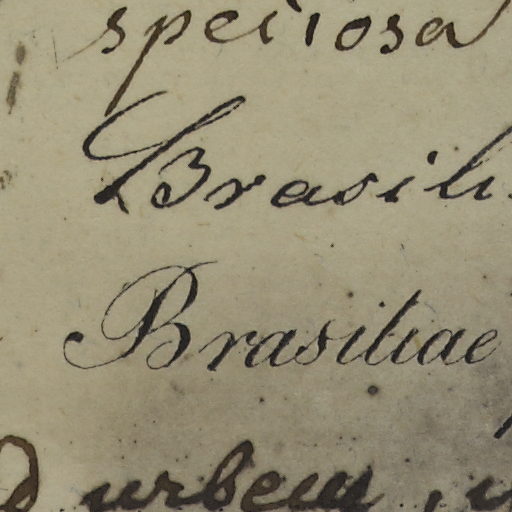 speciosa
Brasili
Brasiliae
d urbem,